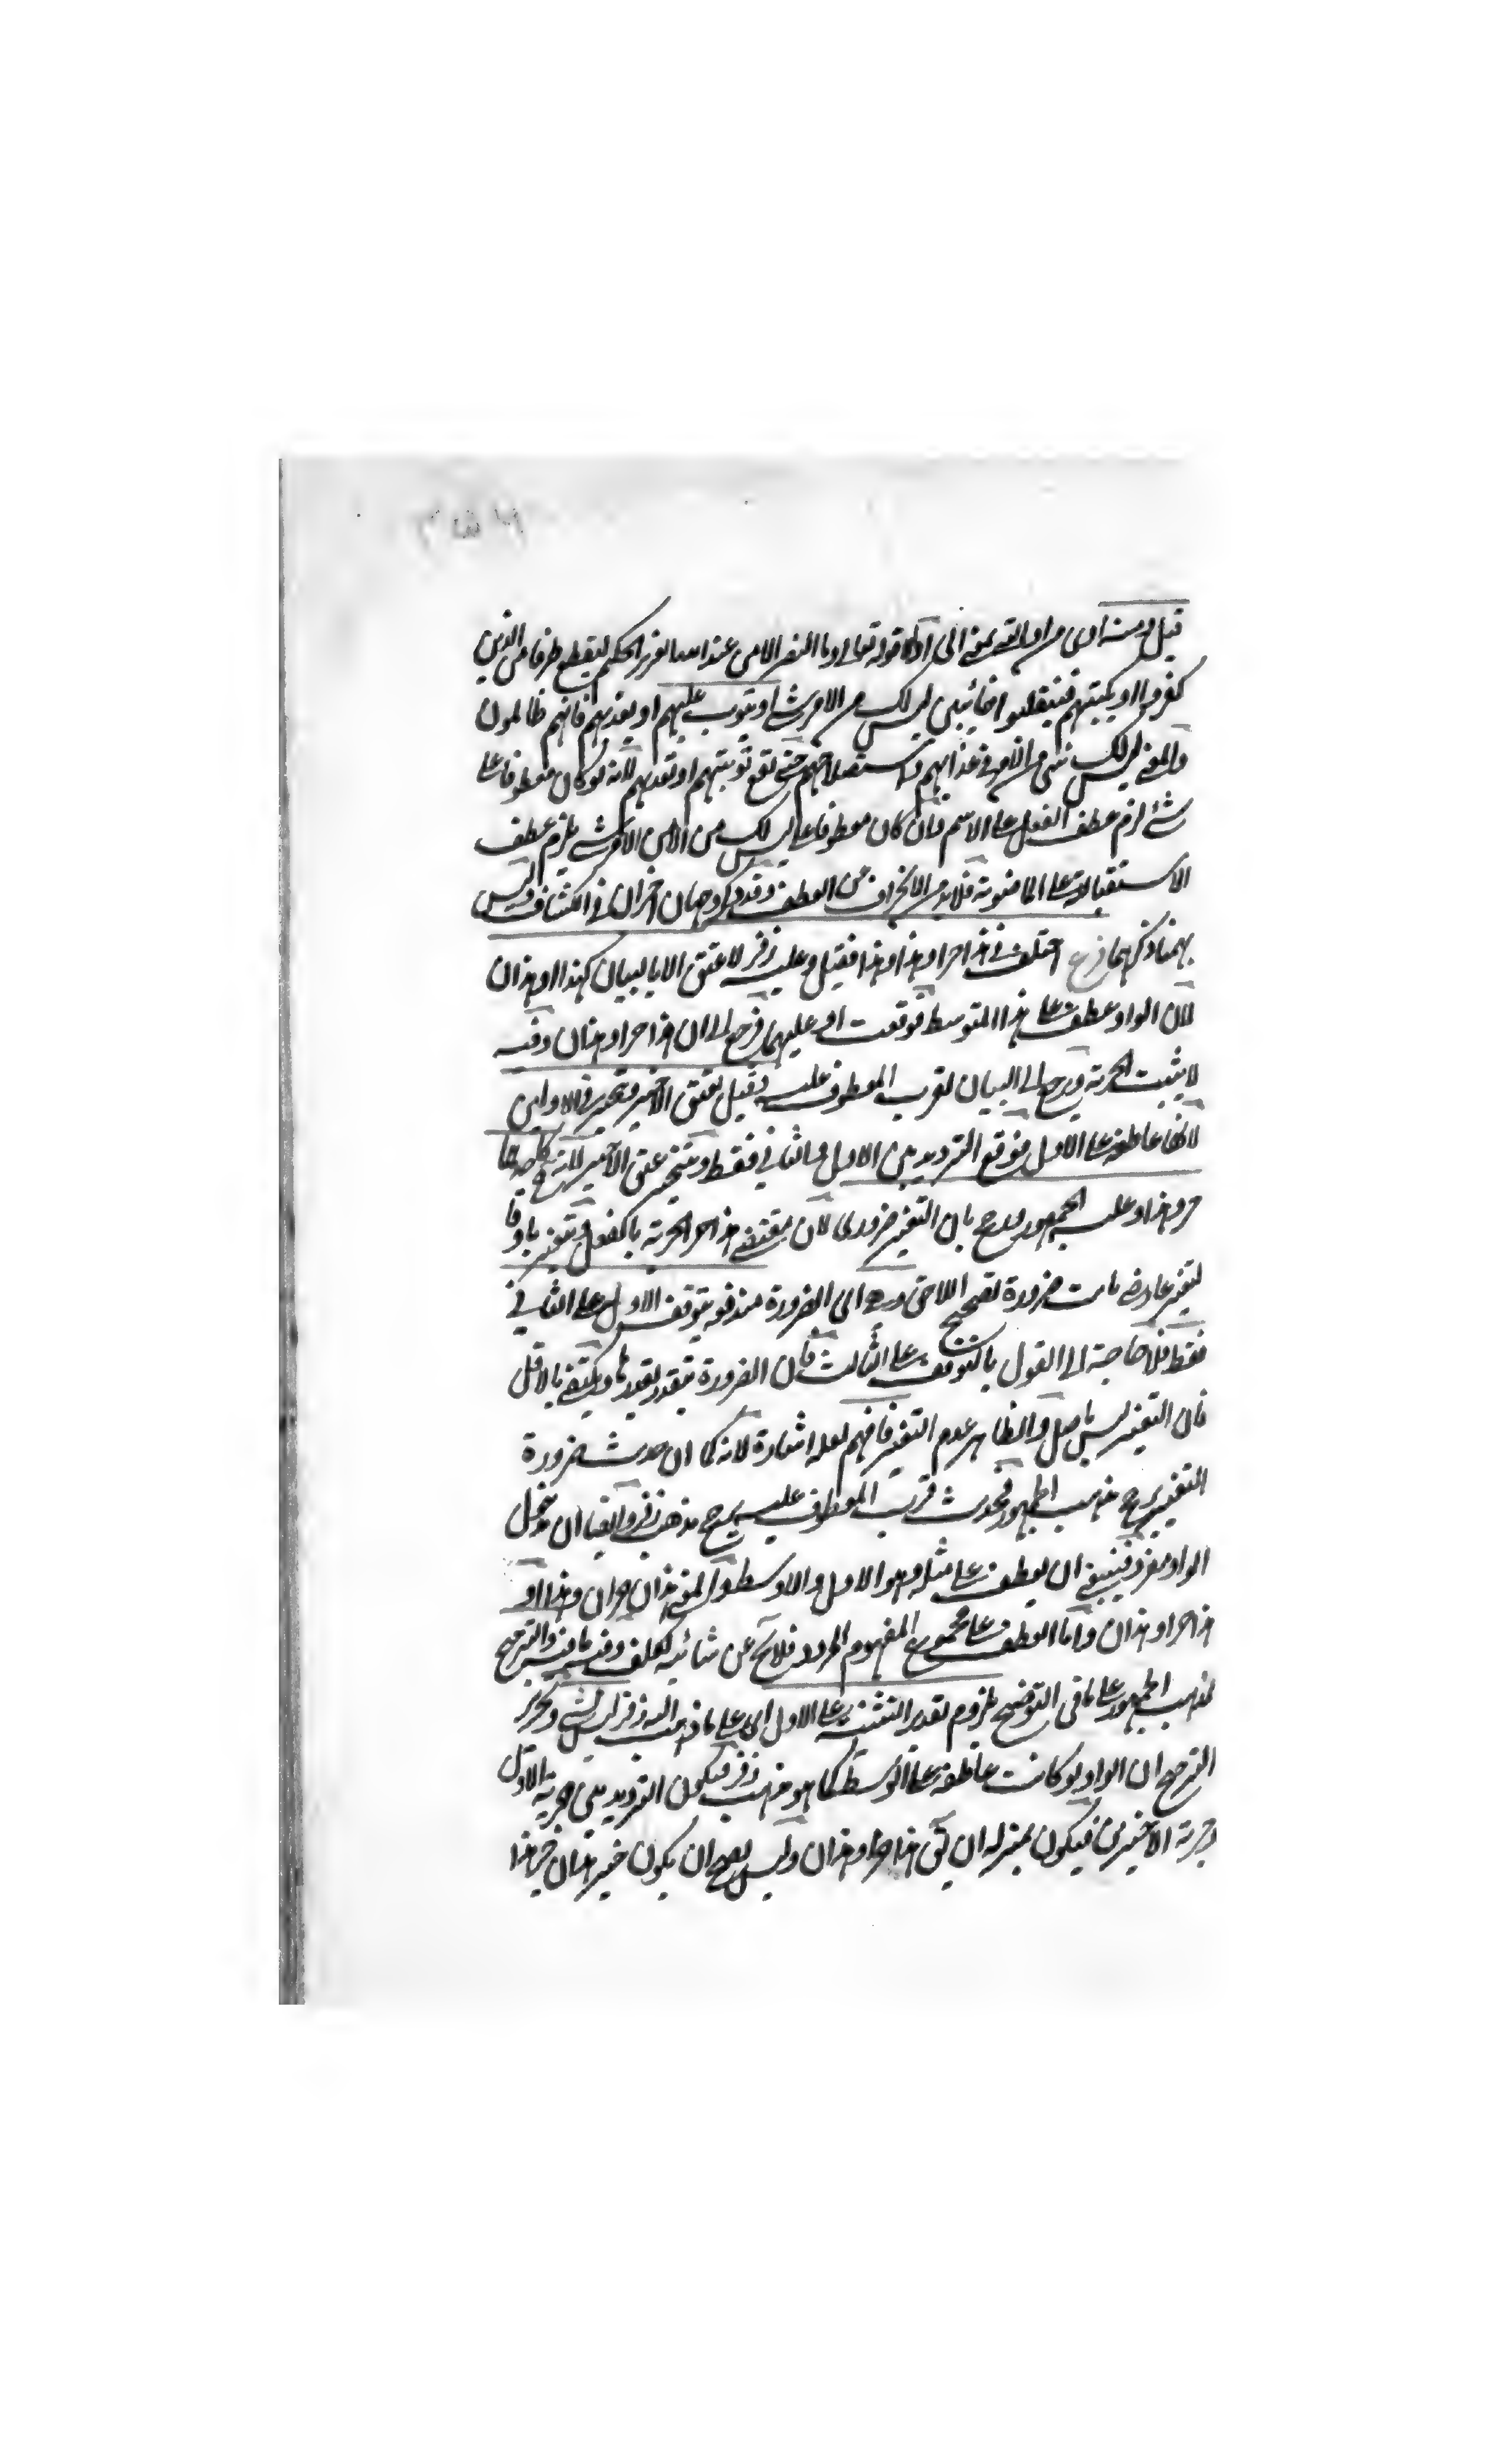 قيل ومنه اى من او التى بمعنى الى او الا قوله تعالى وما النصر الا من عند الله العزيز الحكيم ليقطع طرفا من الذين
كفروا او يكبتهم فينقلبوا خائبين ليس لك من الامر شئ او يتوب عليهم او يعذبهم فانهم ظالمون
والمعنى ليس لك شئ من الامر فى عذابهم واستصلاحهم حتى تقع توبتهم او تعذيبهم لانه لو كان معطوفا على
شئ لزم عطف الفعل على الاسم وان كان معطوفا على ليس لك من الامر شئ يلزم عطف
الاستقبالية على الماضوية فلا بد من الانحراف عن العطف وقد ذكر وجهان اخران فى الكشاف وليس
ههنا ذكرهما فرع اختلف فى هذا حر او هذا وهذا فقيل وعليه زفر لا عتق الا بالبيان كهذا او هذان
لان الواو عطف على هذا المتوسط فوقعت او عليهما فرجع الى ان هذا حر او هذان وفيه
لا يثبت الحرية ويرجع الى البيان لقرب المعطوف عليه وقيل يعتق الاخير ويخير فى الاولين
لانها عاطفة على الاول فوقع الترديد بين الاول والثانى فقط ويتنجز عتق الاخير لانه كاحدهما
حر وهذا وعليه الجمهور ورجح بان التغيير ضرورى لان مقتضى هذا حر الحرية بالفعل وتغير باو
لتغير عارض ضرورة تصحيح اللاحق وهى اى الضرورة مندفعة بتوقف الاول على الثانى
فقط فلا حاجة الى القول بالتوقف على الثالث فان الضرورة تتقدر بقدرها ويكتفى بالاقل
فان التغيير ليس باصل والظاهر عدم التغير فافهم لعله اشارة لانه كما ان حديث ضرورة
التغيير يرجح مذهب الجمهور فحديث قرب المعطوف عليه يرجح مذهب زفر وايضا ان مدخول
الواو مفرد فينبغى ان يعطف على مثله وهو الاول والاوسط والمعنى هذان حران وهذا او
هذا حر او هذان واما العطف على مجموع المفهوم المردد فلا يخ عن شائبة تكلف وفيه ما فيه والترجيح
لمذهب الجمهور على ما فى التوضيح بلزوم تقدير التثنية على الاول اى على ما ذهب اليه زفر ليس بشئ وتحرير
الترجيح ان الواو لو كانت عاطفة على الاوسط كما هو مذهب زفر فيكون الترديد بين حرية الاول
وحرية الاخيرين فيكون بمنزلة ان يق هذا حر او هذان وليس يصح ان يكون خبر هذان خبر هذا